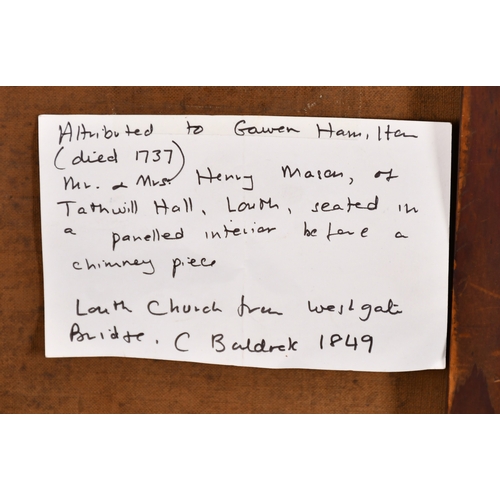 Attributed to Gawen Hamilton
(died 1737)
Mr. & Mrs. Henry Mason, of
Tathwill Hall, Louth, seated in
a panelled interior before a
chimney piece
Louth Church from Westgate
Bridge. C Baldock 1849